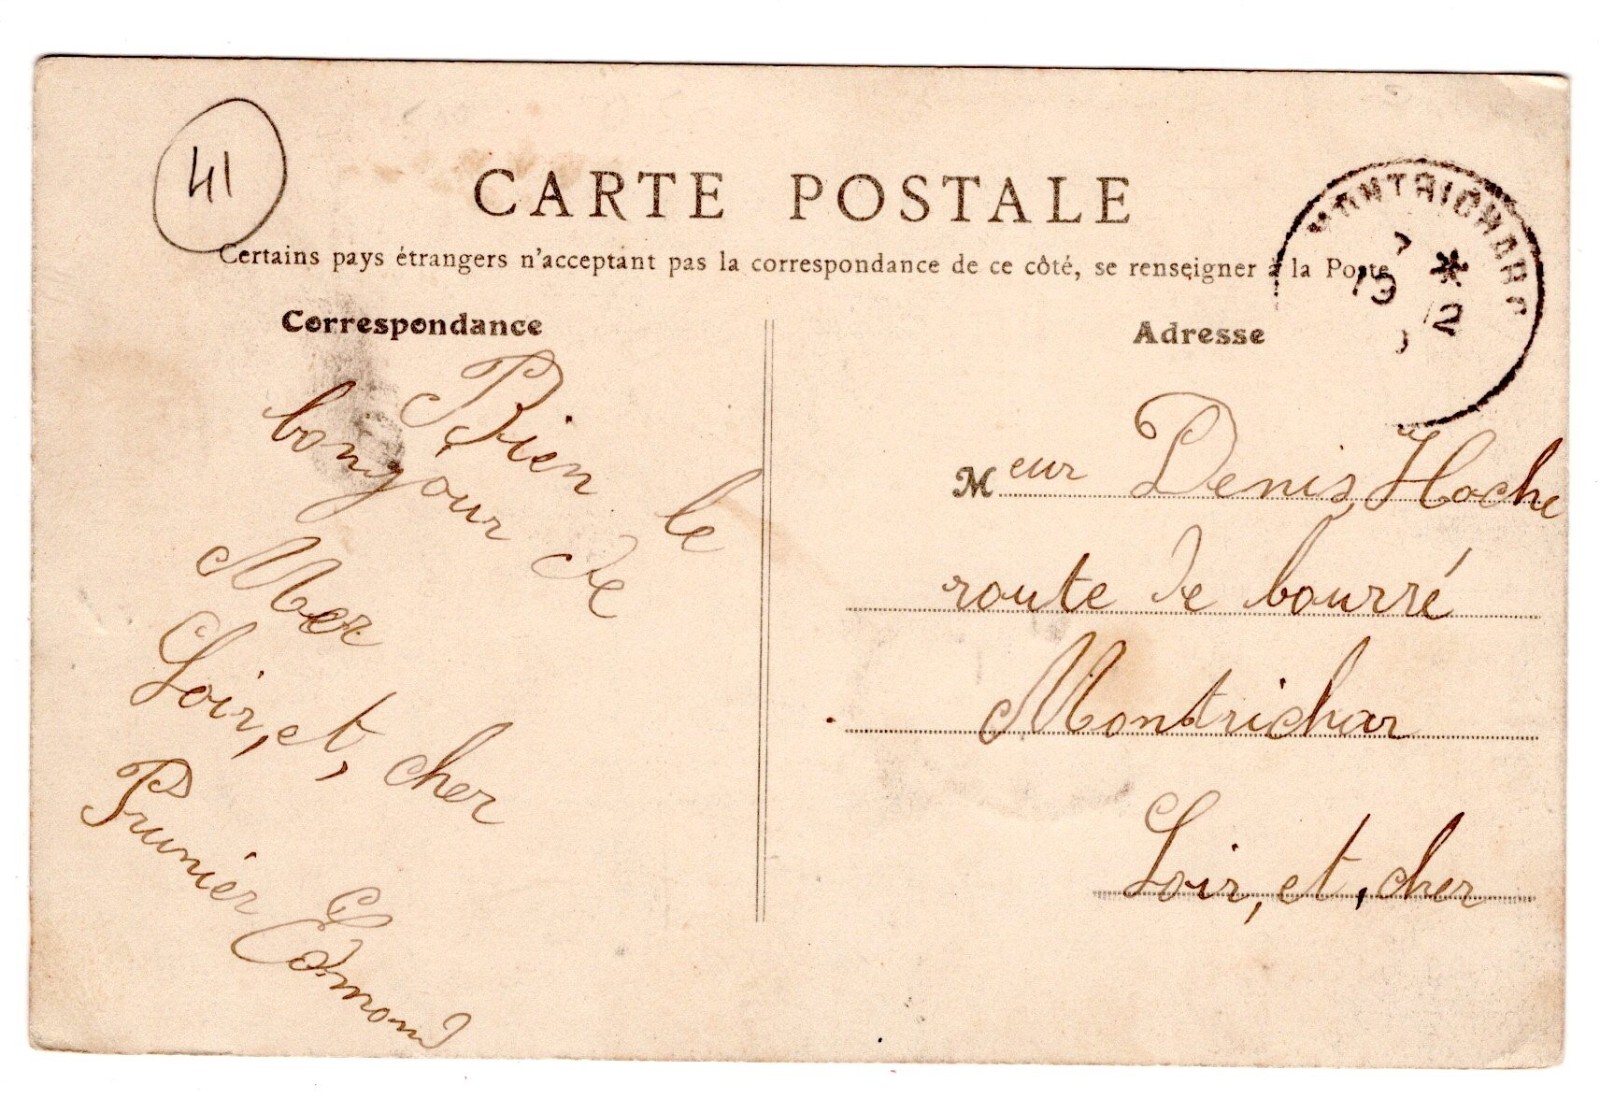 41
CARTE POSTALE
Certains pays étrangers n'acceptant pas la correspondance de ce côté, se renseigner à la Poste
MONTRICHARD
Correspondance
Bien le
bonjour de
Mer
Loir, et, cher
Prunier Edmond
Adresse
Meur Denis Hoche
route de bourré
Montrichar
Loir, et, cher